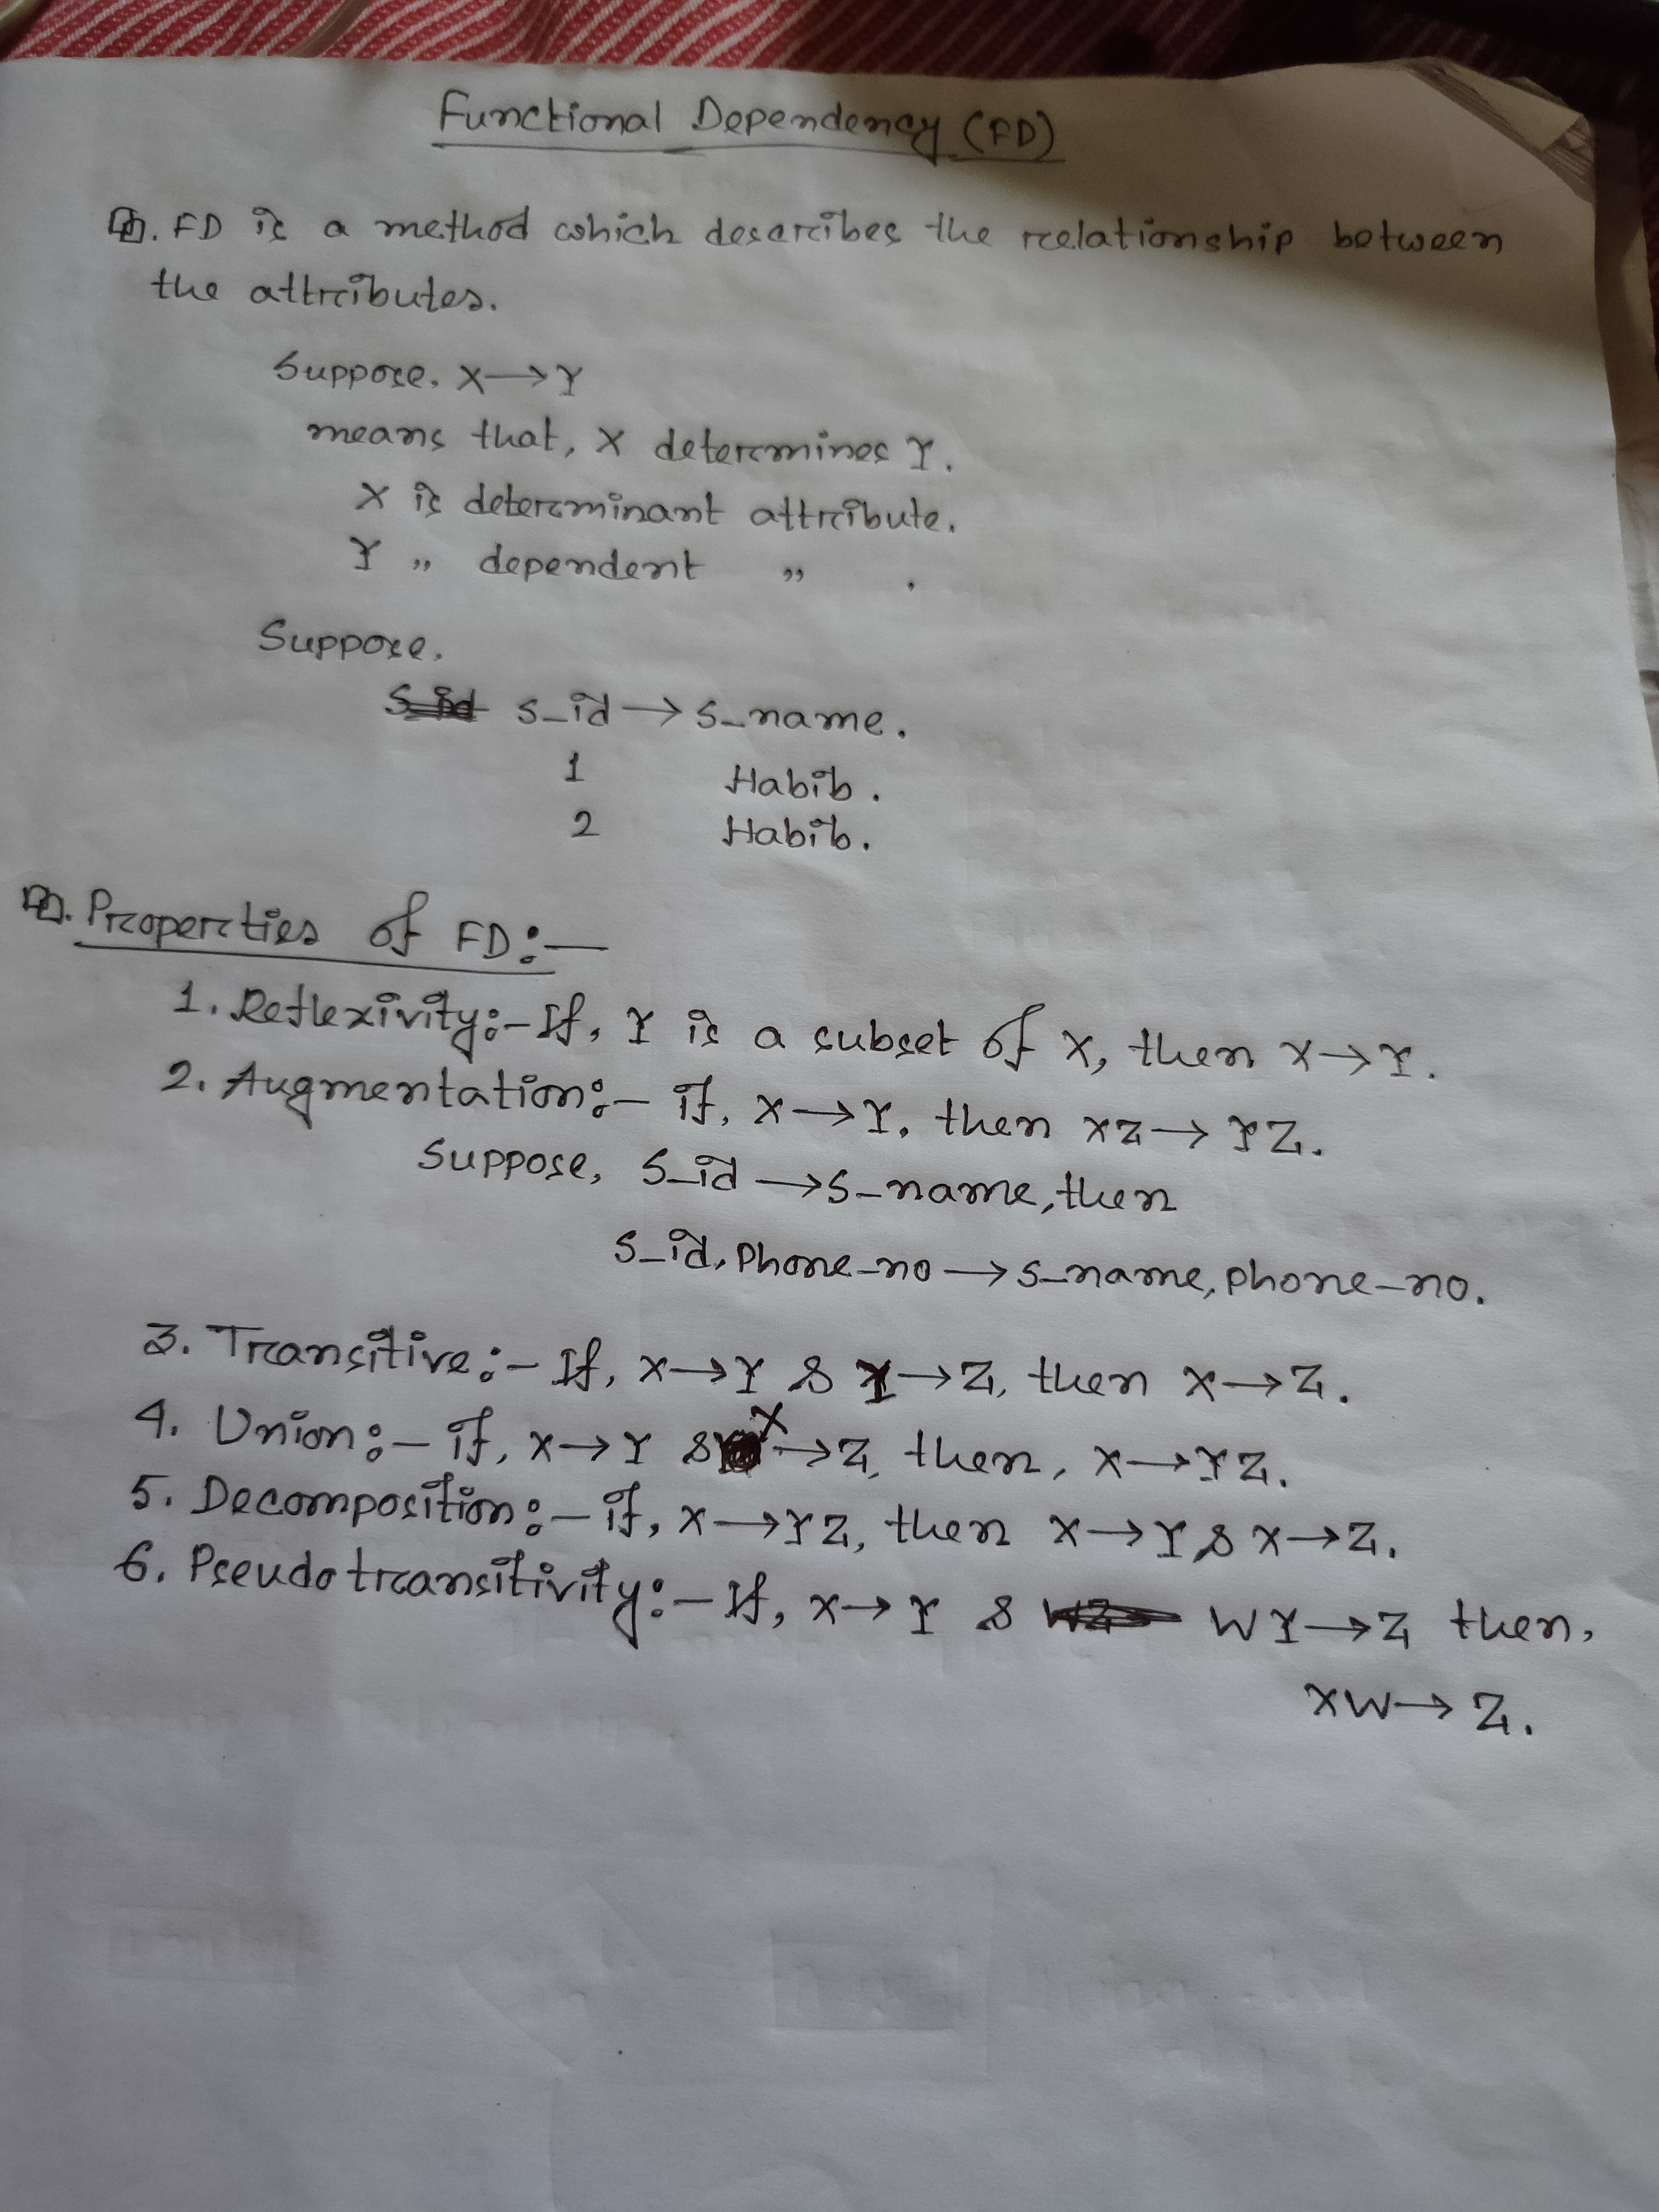 Functional Dependency (FD)
FD is a method which describes the relationship between
the attributes.
Suppose, X→Y
means that, X determines Y.
X is determinant attribute.
Y ,, dependent ,, .
Suppose.
S_id → S_name.
1 Habib.
2 Habib.
Properties of FD:—
1. Reflexivity:- If, Y is a subset of X, then X→Y.
2. Augmentation:- if, X→Y, then XZ→YZ.
Suppose, S_id → S_name, then
S_id, Phone_no → S_name, phone_no.
3. Transitive:- If, X→Y & Y→Z, then X→Z.
4. Union:- if, X→Y & X→Z, then, X→YZ.
5. Decomposition:- if, X→YZ, then X→Y & X→Z.
6. Pseudotransitivity:- If, X→Y & WY→Z then,
XW→Z.